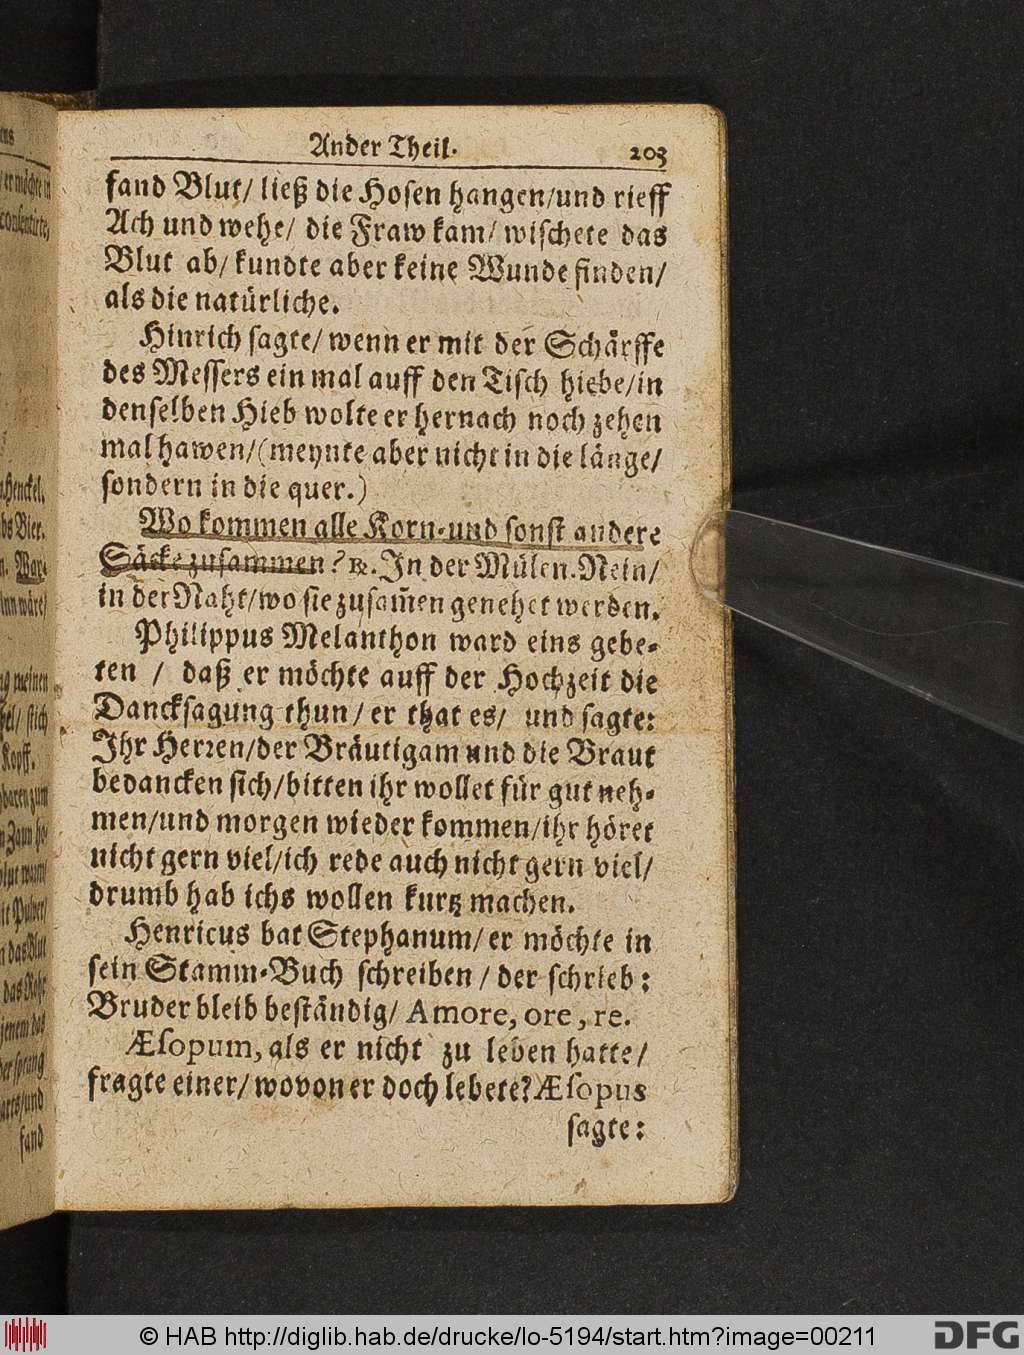 Ander Theil. 203
fand Blut/ ließ die Hosen hangen/und rieff
Ach und wehe/ die Fraw kam/ wischete das
Blut ab/ kundte aber keine Wunde finden/
als die natürliche.
Hinrich sagte/ wenn er mit der Schärffe
des Messers ein mal auff den Tisch hiebe/in
denselben Hieb wolte er hernach noch zehen
mal hawen/(meynte aber nicht in die länge/
sondern in die quer.)
Wo kommen alle Korn-und sonst andere
Säcke zusammen? ℞. In der Mülen. Nein/
in der Naht/wo sie zusam̃en genehet werden.
Philippus Melanthon ward eins gebe-
ten / daß er möchte auff der Hochzeit die
Dancksagung thun/ er that es/ und sagte:
Ihr Herren/der Bräutigam und die Braut
bedancken sich/bitten ihr wollet für gut neh-
men/und morgen wieder kommen/ihr höret
nicht gern viel/ich rede auch nicht gern viel/
drumb hab ichs wollen kurtz machen.
Henricus bat Stephanum/ er möchte in
sein Stamm-Buch schreiben / der schrieb:
Bruder bleib beständig/ Amore, ore, re.
Æsopum, als er nicht zu leben hatte/
fragte einer/ wovon er doch lebete? Æsopus
sagte:
© HAB http://diglib.hab.de/drucke/lo-5194/start.htm?image=00211
DFG